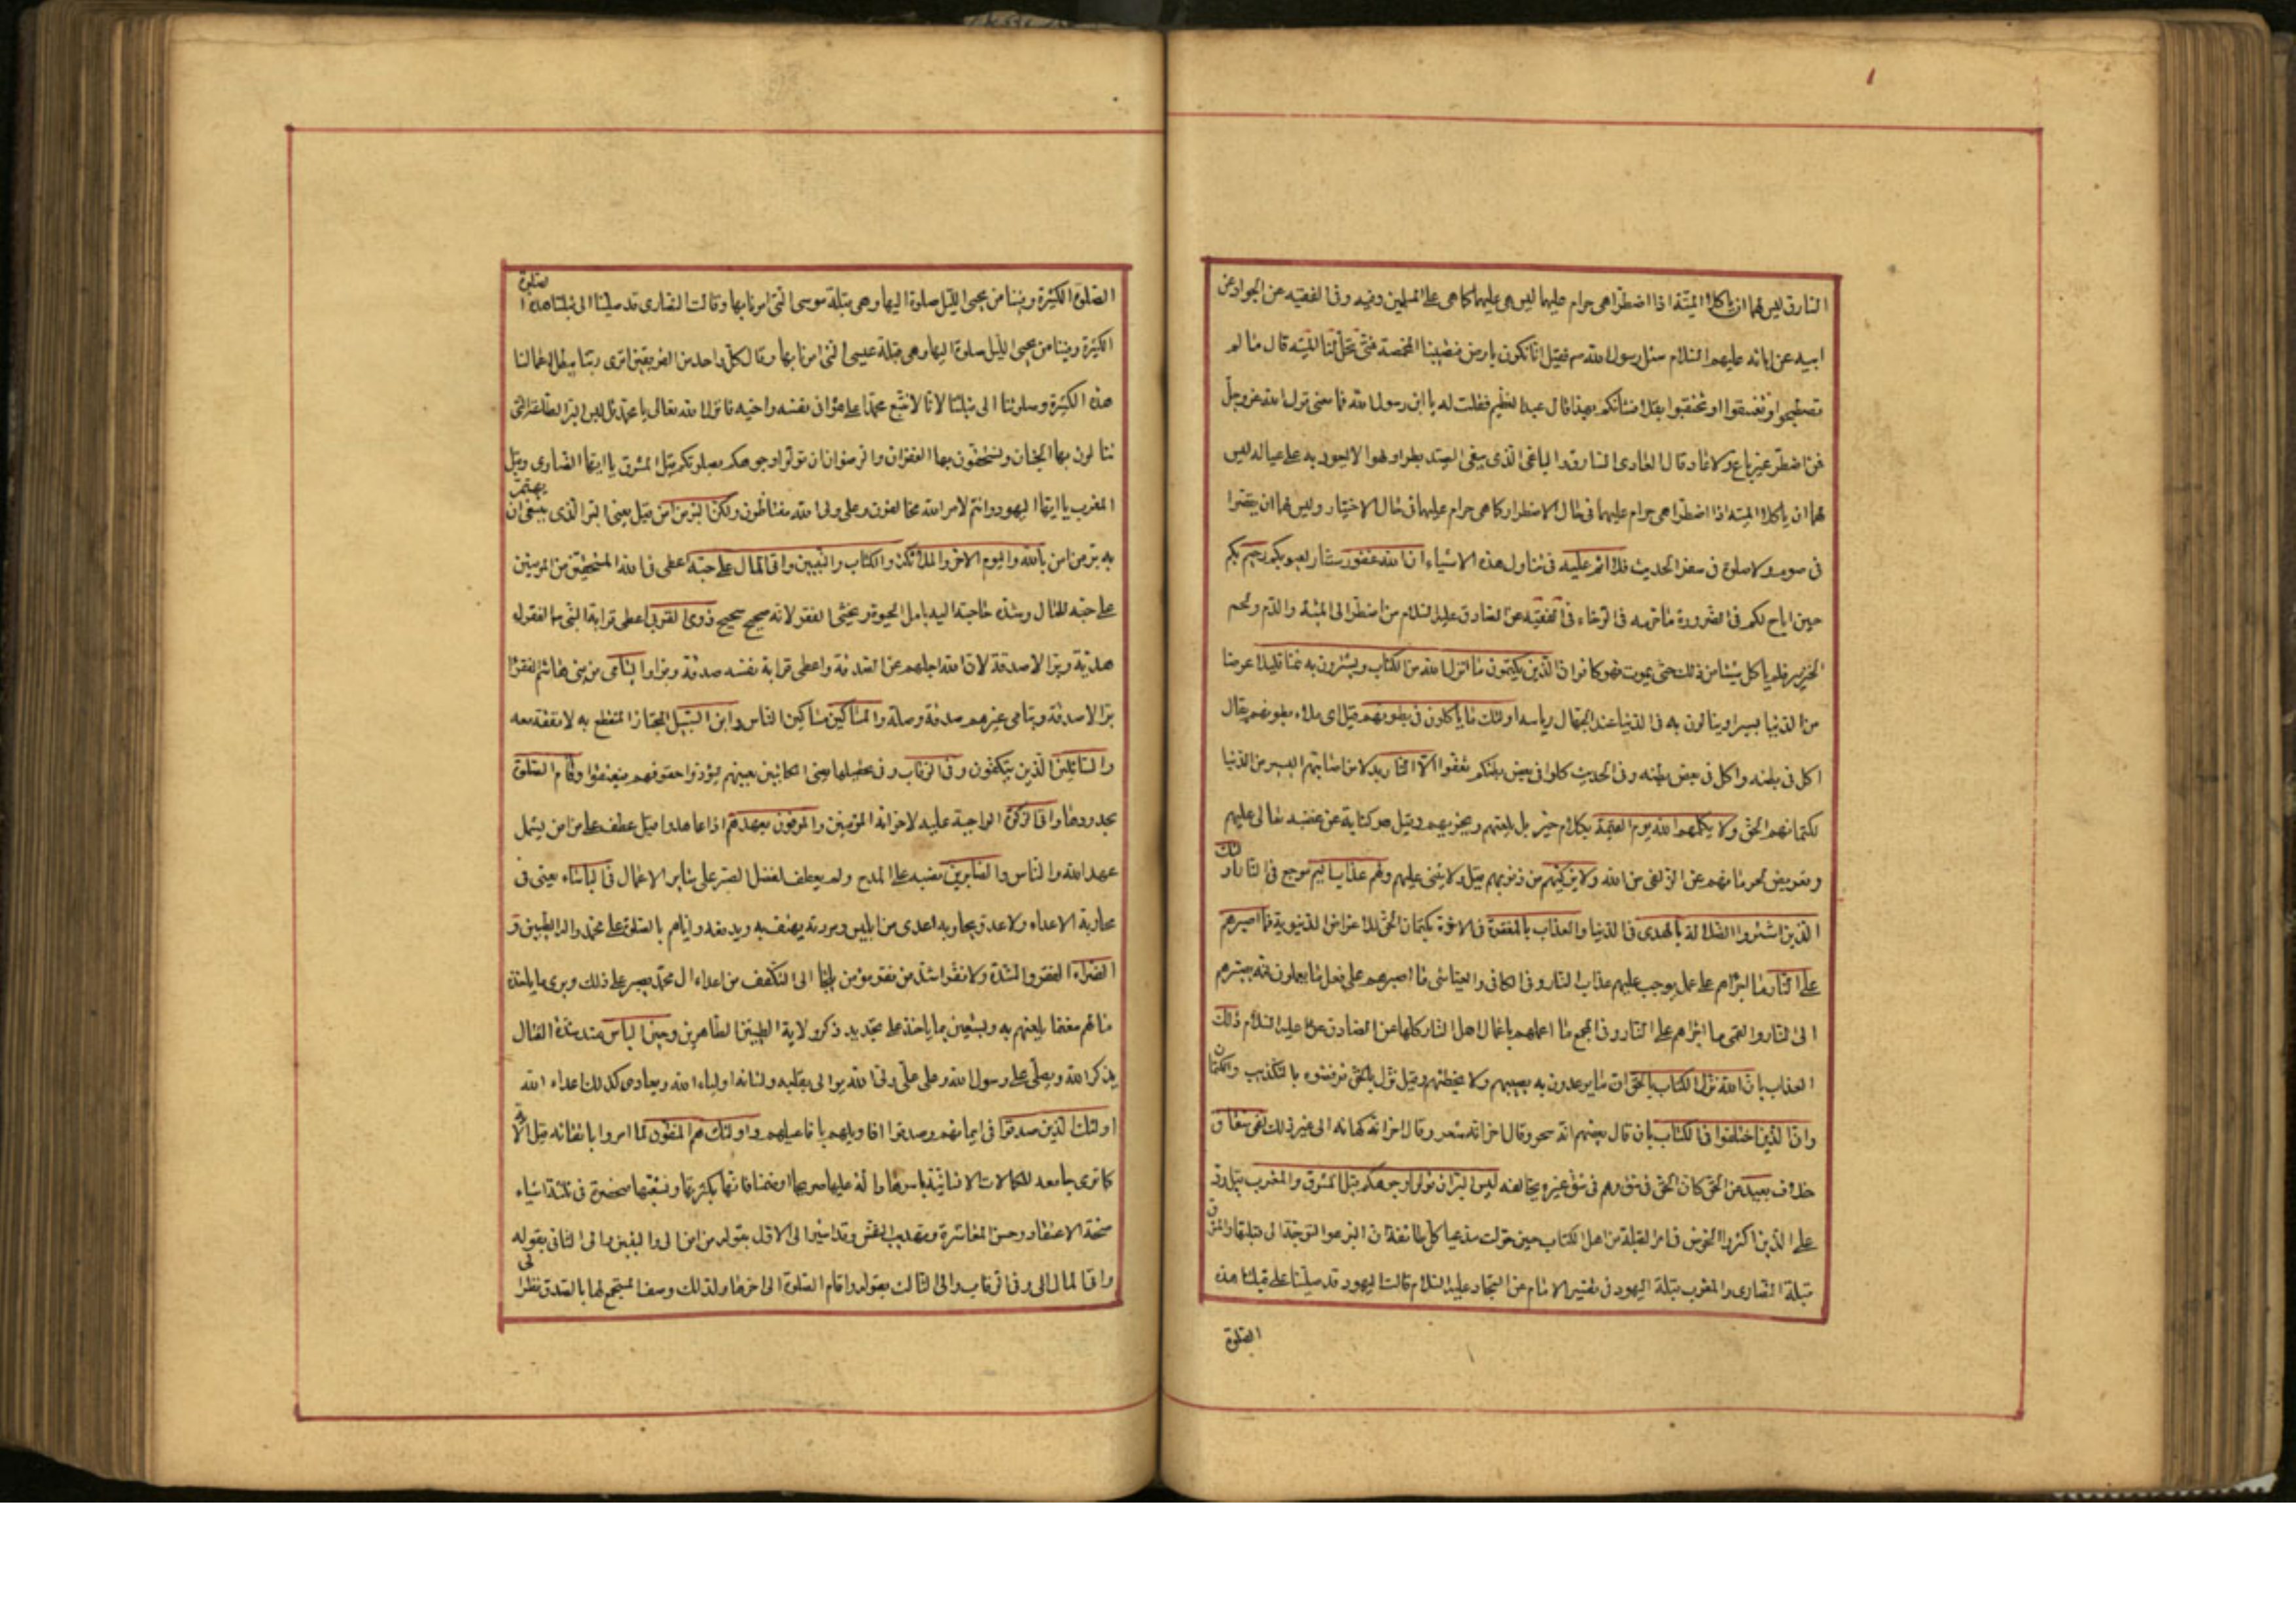 السارق ليس لهما ان ياكلا الميتة اذا اضطرا هى حرام عليهما ليس هى عليهما كما هى على المسلمين وفيه وفى الفقيه عن الجواد عن
ابيه عن ابائه عليهم السلام سئل رسول الله ص فقيل انا نكون بارض فتصيبنا المخمصة فمتى تحل لنا الميتة قال ما لم
تصطبحوا او تغتبقوا او تحتفئوا بقلا فشأنكم بهذا قال عبد العظيم فقلت له يا ابن رسول الله فما معنى قول الله عز وجل
فمن اضطر غير باغ ولا عاد قال العادى السارق والباغى الذى يبغى الصيد بطرا ولهوا لا ليعود به على عياله ليس
لهما ان ياكلا الميتة اذا اضطرا هى حرام عليهما فى حال الاضطرار كما هى حرام عليهما فى حال الاختيار وليس لهما ان يقصرا
فى صوم ولا صلوة فى سفر الحديث فلا اثم عليه فى تناول هذه الاشياء ان الله غفور ستار لعيوبكم رحيم بكم
حين اباح لكم فى الضرورة ما حرمه فى الرخاء فى الفقيه عن الصادق عليه السلام من اضطر الى الميتة والدم ولحم
الخنزير فلم ياكل شيئا من ذلك حتى يموت فهو كافر ان الذين يكتمون ما انزل الله من الكتاب ويشترون به ثمنا قليلا عرضا
من الدنيا يسيرا وينالون به فى الدنيا عند الجهال رياسة اولئك ما ياكلون فى بطونهم قيل اى ملاء بطونهم يقال
اكل فى بطنه واكل فى بعض بطنه وفى الحديث كلوا فى بعض بطنكم تعفوا الا النار بدلا من اصابتهم اليسير من الدنيا
لكتمانهم الحق ولا يكلمهم الله يوم القيمة بكلام خير بل يلعنهم ويخزيهم وقيل هو كناية عن غضبه تعالى عليهم
وتعريض بحرمانهم عن الزلفى من الله ولا يزكيهم من ذنوبهم وقيل ولا يثنى عليهم ولهم عذاب اليم موجع فى النار اولئك
الذين اشتروا الضلالة بالهدى فى الدنيا والعذاب بالمغفرة فى الاخرة بكتمان الحق للاغراض الدنيوية فما اصبرهم
على النار ما اجرأهم على عمل يوجب عليهم عذاب النار وفى الكافى والعياشى ما اصبرهم على فعل ما يعلمون انه يصيرهم
الى النار والقمى ما اجرأهم على النار وفى المجمع ما اعملهم باعمال اهل النار كلها عن الصادق عليه السلام ذلك
العذاب بان الله نزل الكتاب بالحق ان ما يوعدون به يصيبهم ولا يخطئهم وقيل نزل بالحق فرفضوه بالتكذيب والكتمان
وان الذين اختلفوا فى الكتاب بان قال بعضهم انه سحر وقال اخر انه شعر وقال اخر انه كهانة الى غير ذلك لفى شقاق
خلاف بعيد من الحق كان الحق فى شق وهم فى شق غيره يخالفه ليس البر ان تولوا وجوهكم قبل المشرق والمغرب قيل رد
على الذين اكثروا الخوض فى امر القبلة من اهل الكتاب حين حولت مدعيا كل طائفة ان البر هو التوجه الى قبلتها والمشرق
قبلة النصارى والمغرب قبلة اليهود فى تفسير الامام عن السجاد عليه السلام قالت اليهود قد صلينا على قبلتنا هذه
الصلوة
الصلوة الكثيرة وفينا من يحيى الليل صلوة اليها وهى قبلة موسى التى امرنا بها وقالت النصارى قد صلينا الى قبلتنا هذه الصلوة
الكثيرة وفينا من يحيى الليل صلوة اليها وهى قبلة عيسى التى امرنا بها وقال كل واحد من الفريقين اترى ربنا يبطل اعمالنا
هذه الكثيرة وصلوتنا الى قبلتنا لانا لا نتبع محمدا على هواه فى نفسه واخيه فانزل الله تعالى يا محمد قل ليس البر الطاعة التى
تنالون بها الجنان وتستحقون بها الغفران والرضوان ان تولوا وجوهكم بصلوتكم قبل المشرق يا ايها النصارى وقبل
المغرب يا ايها اليهود وانتم لامر الله مخالفون وعلى ولى الله مغتاظون ولكن البر من امن قيل يعنى البر الذى ينبغى ان يهتم
به بر من امن بالله واليوم الاخر والملائكة والكتاب والنبيين واتى المال على حبه اعطى فى الله المستحقين من المؤمنين
على حبه للمال وشدة حاجته اليه يامل الحيوة ويخشى الفقر لانه صحيح شحيح ذوى القربى اعطى قرابة النبى الفقراء
هدية وبرا لا صدقة لان الله اجلهم عن الصدقة واعطى قرابة نفسه صدقة وبرا واليتامى من بنى هاشم الفقراء
برا لا صدقة ويتامى غيرهم صدقة وصلة والمساكين مساكين الناس وابن السبيل المجتاز المنقطع به لا نفقة معه
والسائلين الذين يتكففون وفى الرقاب وفى تخليصها يعنى المكاتبين يعينهم ليؤدوا حقوقهم فيعتقوا واقام الصلوة
بحدودها واتى الزكوة الواجبة عليه لاخوانه المؤمنين والموفون بعهدهم اذا عاهدوا قيل عطف على من امن يشمل
عهد الله والناس والصابرين نصبه على المدح ولم يعطف لفضل الصبر على سائر الاعمال فى الباساء يعنى فى
محاربة الاعداء ولا عدو يحاربه اعدى من ابليس ومردته يهتف به ويدفعه واياهم بالصلوة على محمد واله الطيبين و
الضراء الفقر والشدة ولا فقر اشد من فقر مؤمن يلجأ الى التكفف من اعداء ال محمد يصبر على ذلك ويرى ما ياخذه
من مالهم مغنما يلعنهم به ويستعين بما ياخذ على تجديد ذكر ولاية الطيبين الطاهرين وحين الباس عند شدة القتال
يذكر الله ويصلى على رسول الله وعلى على ولى الله يوالى بقلبه ولسانه اولياء الله ويعادى كذلك اعداء الله
اولئك الذين صدقوا فى ايمانهم وصدقوا اقاويلهم بافاعيلهم واولئك هم المتقون لما امروا باتقائه قيل الاية
كما ترى جامعه للكمالات الانسانية باسرها دالة عليها صريحا او ضمنا فانها بكثرتها وتشعبها منحصرة فى ثلثة اشياء
صحة الاعتقاد وحسن المعاشرة وتهذيب النفس وقد اشير الى الاول بقوله من امن الى والنبيين والى الثانى بقوله
واتى المال الى وفى الرقاب والى الثالث بقوله واقام الصلوة الى اخرها ولذلك وصف المستجمع لها بالصدق نظرا الى